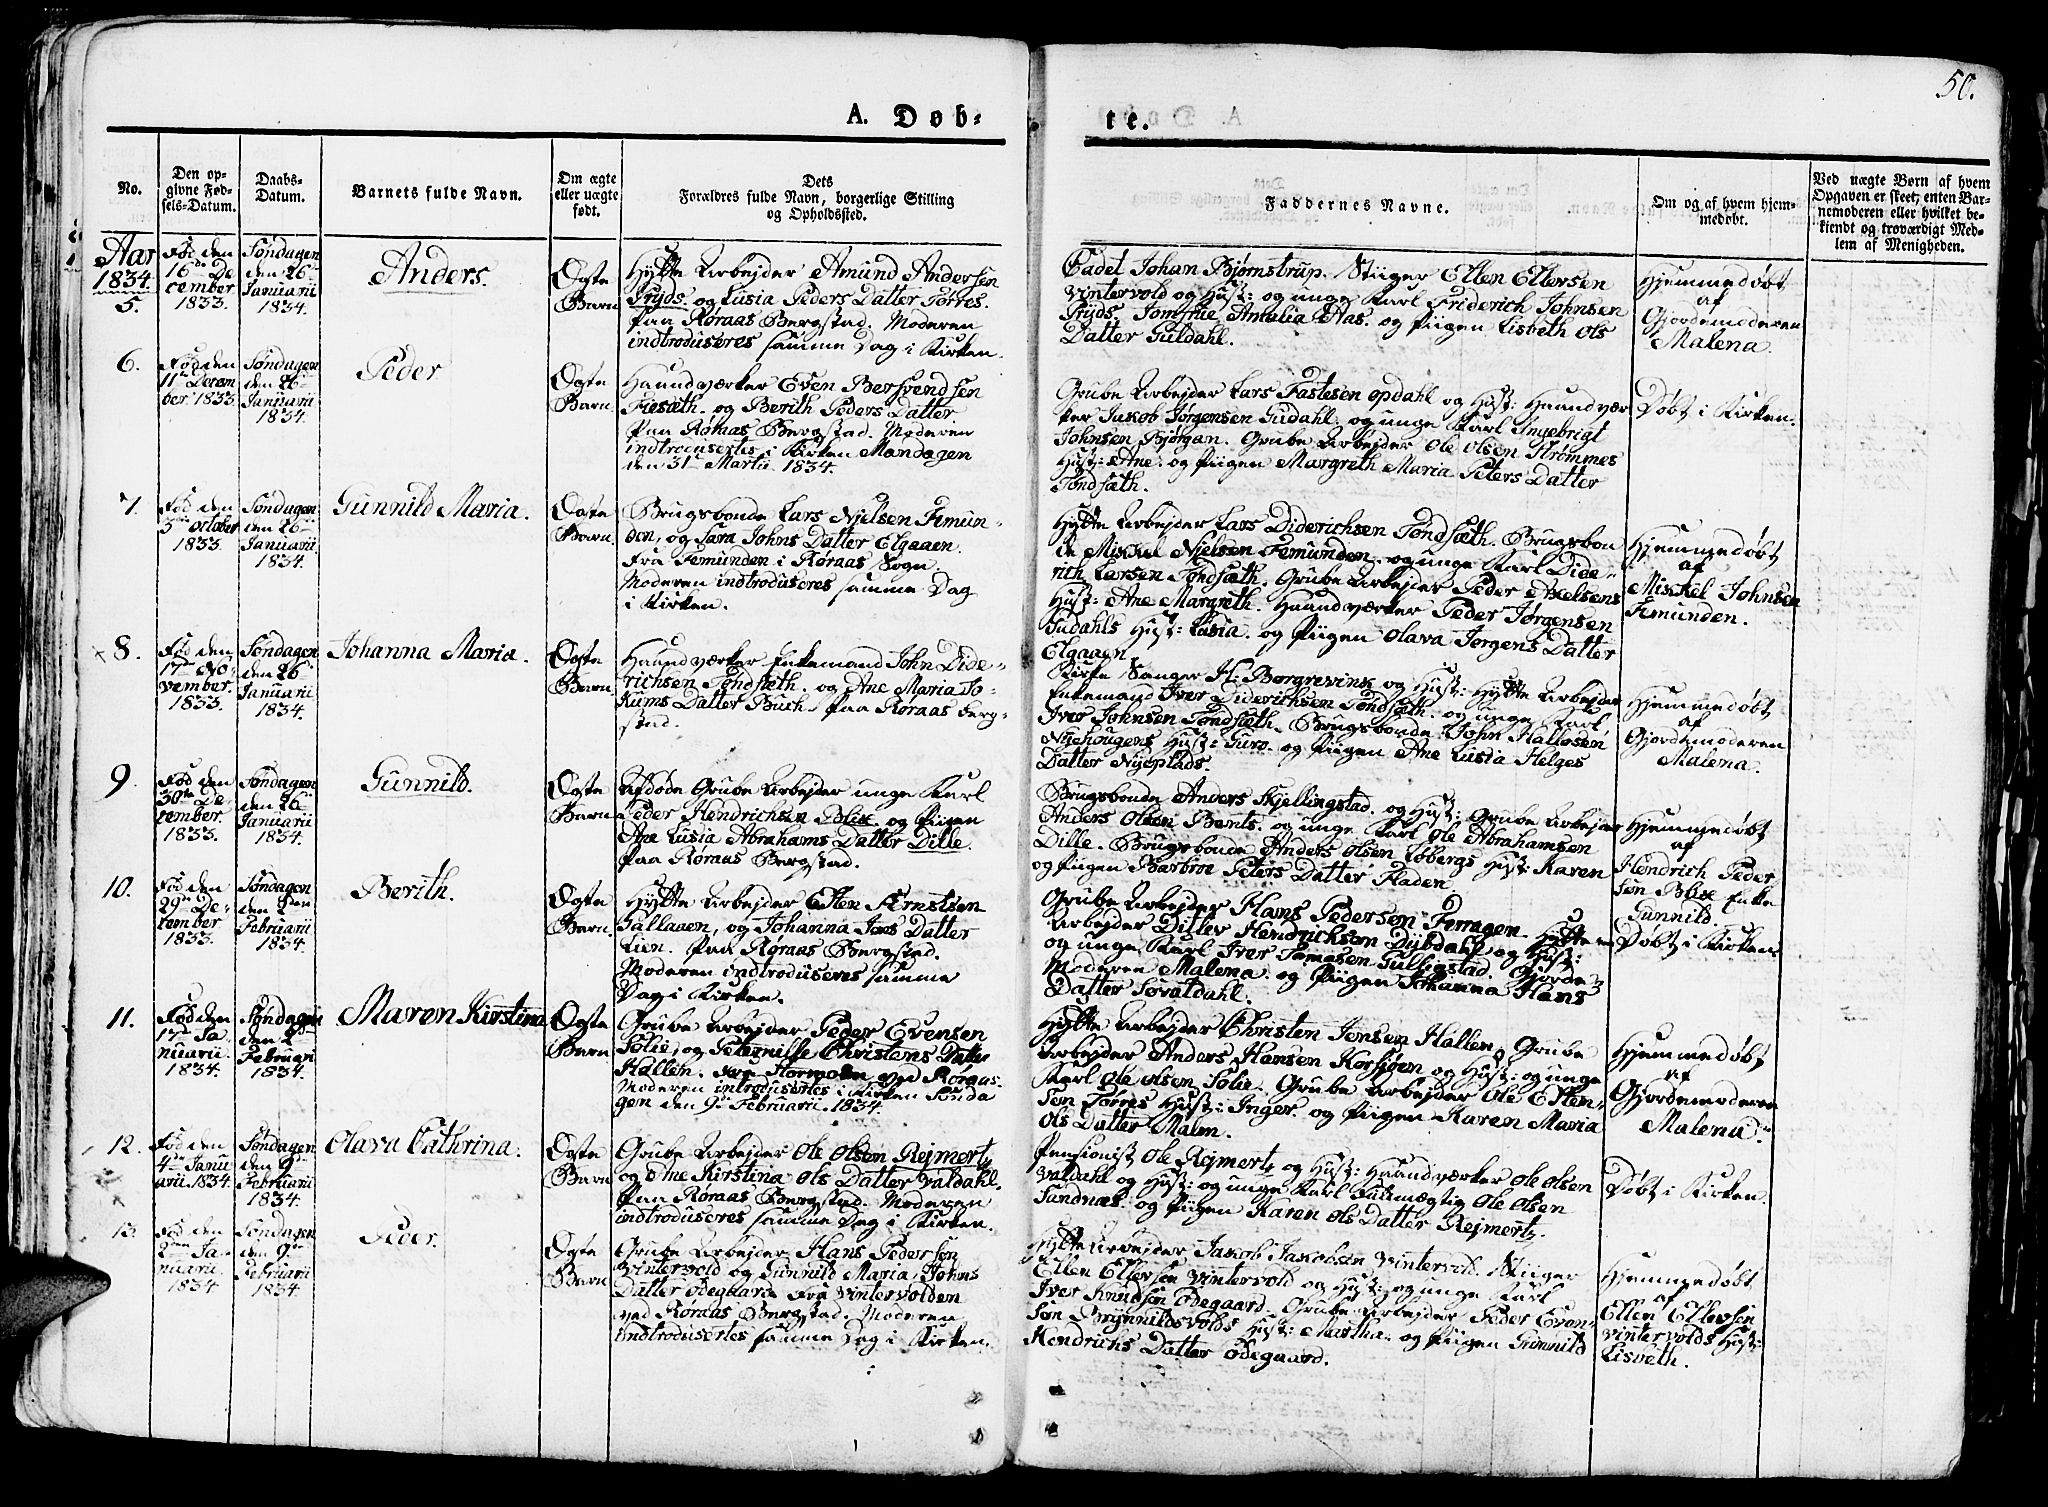 50.
A. Døb-
te.
No.
Den op-
givne Fød-
sels-Datum.
Daabs-
Datum.
Barnets fulde Navn.
Om ægte
eller uægte
født.
Dets
Forældres fulde Navn, borgerlige Stilling
og Opholdssted.
Faddernes Navne.
Om og af hvem hjem-
medøbt.
Ved uægte Børn af hvem
Opgaven er skeet, enten Bar-
nemoderen eller hvilket be-
kiendt og troværdigt Med-
lem af Menigheden.
Aar
1834.
5.
Fød den
16de De
cember
1833.
Søndagen
den 26de
Januarii
1834.
Anders.
Ægte
Barn.
Hytte Arbejder Amund Andersen
Pryds. og Lusia Peders Datter Torres.
Paa Røraas Bergstad. Moderen
indtroduseres samme Dag i Kirken.
Cadet Johan Bjørnstrup. Stiiger Ellen Ellefsen
Vintervold og Hust: og unge Karl Friderich Johnsen
Pryds. Jomfrue Amalia Aas. og Piigen Lisbeth Ols
Datter Guldahl.
Hjemmedøbt
af
Gjordemoderen
Malena.
6.
Fød den
11te Decem
ber 1833.
Søndagen
den 26de
Januarii
1834.
Peder
Ægte
Barn.
Haandværker Even Bersvendsen
Fiesæth. og Berith Peders Datter
Paa Røraas Bergstad. Moderen
indtrodusertes i Kirken Mandagen
den 31te Martii 1834.
Grube Arbejder Lars Fastesen Opdahl og Hust: Haandvær
ker Jakob Jørgensen Sudahl. og unge Karl Ingebrigt
Johnsen Bjørgan. Grube Arbejder Ole Olsen Strømmes
Hust: Ane. og Piigen Margreth Maria Peters Datter
Tøndsæth.
Døbt i Kirken.
7.
Fød den
3die October
1833.
Søndagen
den 26de
Januarii
1834.
Gunnild Maria.
Ægte
Barn.
Brugsbonde Lars Njelsen Femun-
den, og Sara Johns Datter Elgaaen.
Fra Femunden i Røraas Sogn.
Moderen indtroduseres samme Dag
i Kirken.
Hytte Arbejder Lars Diderichsen Tøndsæth. Brugsbon
de Mikkel Njelsen Femunden. og unge Karl Dide-
rich Larsen Tøndsæth. Grube Arbejder Peder Axelsens
Hust: Ane Margreth. Haandværker Peder Jørgensen
Sudahls Hust: Lusia. og Piigen Olava Jørgens Datter
Elgaaen.
Hjemmedøbt
af
Mikkel Johnsen
Femunden.
8.
Fød den
17de No
vember.
1833.
Søndagen
den 26
Januarii
1834.
Johanna Maria.
Ægte
Barn.
Haandværker Enkemand John Dide-
richsen Tøndsæth. og Ane Maria Jo-
kums Datter Buch. Paa Røraas Berg-
stad.
Kirke Sanger H: Borgrevink og Hust: Hytte Arbejder
Enkemand Iver Diderichsen Tøndsæth. og unge Karl
Iver Johnsen Tøndsæth. Brugsbonde John Hallosen
Nyehougens Hust: Guro. og Piigen Ane Lusia Helges
Datter Nyeplads.
Hjemmedøbt
af
Gjordemoderen
Malena.
9.
Fød den
30te De-
cember.
1833.
Søndagen
den 26
Januarii
1834.
Gunnild.
Ægte
Barn.
Afdøde Grube Arbejder unge Karl
Peder Hendrichsen Blix og Piigen
Ane Lusia Abrahams Datter Dille.
Paa Røraas Bergstad.
Brugsbonde Anders Skjellingstad. og Hust: Grube Arbejder
Anders Olsen Bents. og unge Karl Ole Abrahamsen
Dille. Brugsbonde Anders Olsen Løbergs Hust: Karen
og Piigen Barbroe Peters Datter Fladen.
Hjemmedøbt
af
Hendrich Peder
sen Blix Enke
Gunnild.
10.
Fød den
29de De-
cember
1833.
Søndagen
den 2den
Februarii
1834.
Berith.
Ægte
Barn.
Hytte Arbejder Ellen Arntsen
Gallaaen, og Johanna Jons Datter
Lien. Paa Røraas Bergstad.
Moderen indtroduseres samme
Dag i Kirken.
Grube Arbejder Hans Pedersen Ferragen. Hytte
Arbejder Ditlev Hendrichsen Dybdahl og Hust:
og unge Karl Iver Tomasen Gulligstad. Gjorde-
moderen Malena. og Piigen Johanna Hans
Datter Sovaldahl.
Døbt i Kirken.
11.
Fød den
17de Ja
nuarii.
1834.
Søndagen
den 2den
Februarii
1834.
Maren Kirstina
Ægte
Barn
Grube Arbejder Peder Evensen
Solie, og Peternille Christens Datter
Hallen. Fra Stormoen ved Røraas.
Moderen introdusertes i Kirken Sønda
gen den 9de Februarii. 1834.
Hytte Arbejder Christen Jensen Hallen. Grube
Arbejder Anders Hansen Korssjøen og Hust: og unge
Karl Ole Olsen Solie. Grube Arbejder Ole Ellen-
sen Torres Hust: Inger. og Piigen Karen Maria
Ols Datter Malm.
Hjemmedøbt
af
Gjordemoderen
Malena.
12.
Fød den
4de Janu
arii. 1834.
Søndagen
den 9de
Februarii
1834.
Olava Cathrina.
Ægte
Barn
Grube Arbejder Ole Olsen Rejmertz
og Ane Kirstina Ols Datter Valdahl.
Paa Røraas Bergstad. Moderen
indtroduseres samme Dag i Kirken.
Pensionist Ole Rejmertz og Hust: Haandværker Ole Olsen
Valdahl og Hust: og unge Karl Fuldmægtig Ole Olsen
Sundnæs. og Piigen Karen Ols Datter Rejmertz.
Døbt i Kirken.
13.
Fød den
2den Ja-
nuarii.
1834
Søndagen
den 9de
Februarii
1834
Peder.
Ægte
Barn
Grube Arbejder Hans Pedersen
Vintervold og Gunnild Maria Johns
Datter Ødegaard. Fra Vintervolden
ved Røraas Bergstad. Moderen
indtrodusertes samme Dag i Kirken.
Hytte Arbejder Jakob Jakobsen Vintervold. Stiiger
Ellen Ellefsen Vintervold og Hust: og unge Karl
Iver Knudsen Ødegaard. Grube Arbejder Peder Even-
sen Brynnildsvolds Hust: Martha. og Piigen Gunnild
Hendrichs Datter Ødegaard.
Hjemmedøbt
af
Ellen Ellefsen
Vintervolds Hust:
Lisbeth.